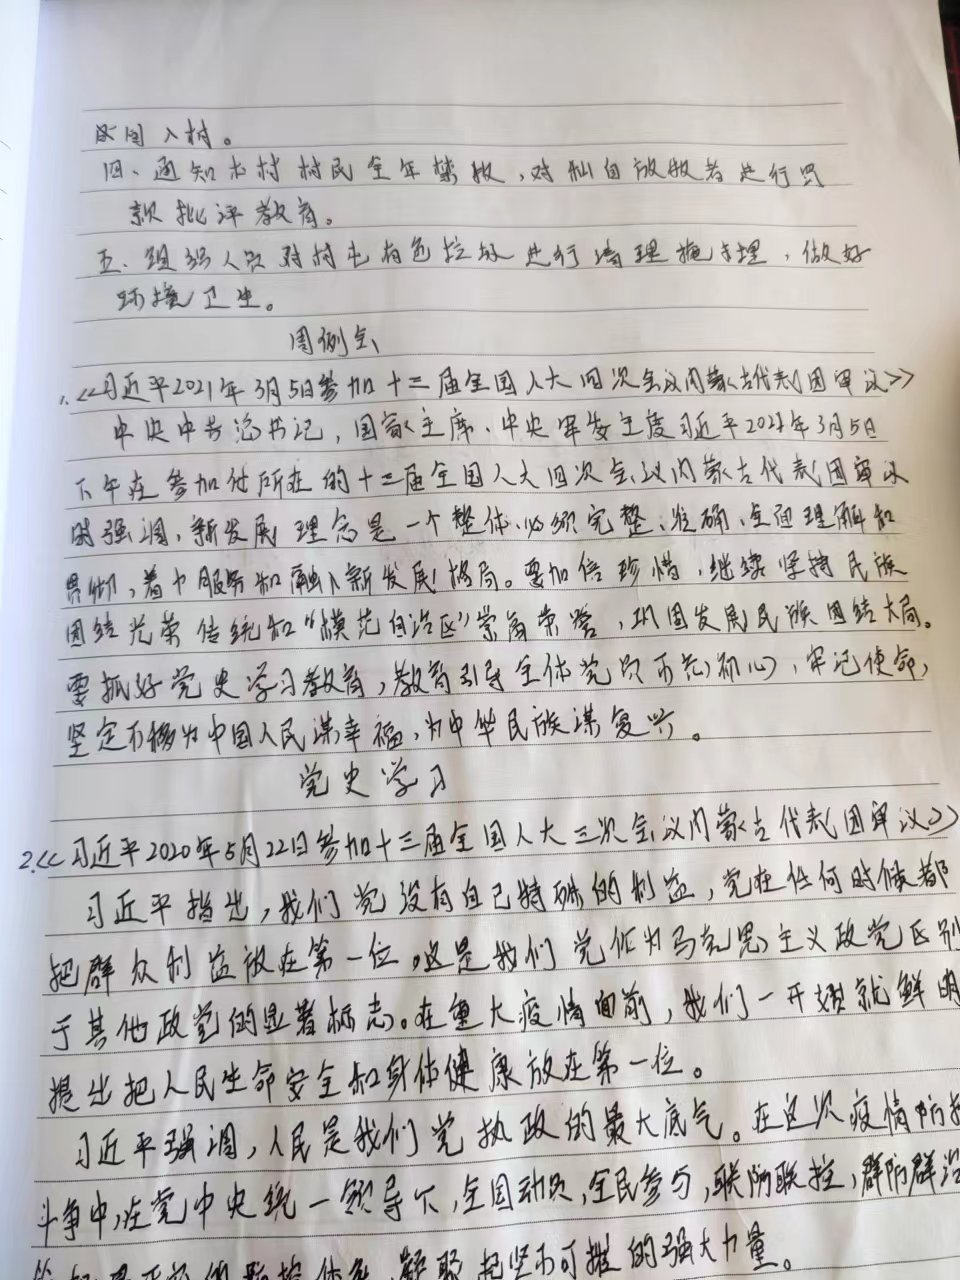 入村。
四、通知本村村民全年禁牧,对私自放牧者进行罚
款批评教育。
五、组织人员对村屯白色垃圾进行清理掩埋,做好
环境卫生。
周例会
1.《习近平2021年3月5日参加十三届全国人大四次会议内蒙古代表团审议》
中央中书总书记,国家主席、中央军委主席习近平2021年3月5日
下午在参加他所在的十三届全国人大四次会议内蒙古代表团审议
时强调,新发展理念是一个整体,必须完整、准确、全面理解和
贯彻,着力服务和融入新发展格局。要加倍珍惜,继续坚持民族
团结光荣传统和“模范自治区”崇高荣誉,巩固发展民族团结大局。
要抓好党史学习教育,教育引导全体党员不忘初心,牢记使命,
坚定不移为中国人民谋幸福,为中华民族谋复兴。
党史学习
2.《习近平2020年5月22日参加十三届全国人大三次会议内蒙古代表团审议》
习近平指出,我们党没有自己特殊的利益,党在任何时候都
把群众利益放在第一位。这是我们党作为马克思主义政党区别
于其他政党的显著标志。在重大疫情面前,我们一开始就鲜明
提出把人民生命安全和身体健康放在第一位。
习近平强调,人民是我们党执政的最大底气。在这次疫情防控
斗争中,在党中央统一领导下,全国动员,全民参与,联防联控,群防群治
的防控体系,凝聚起坚不可摧的强大力量。